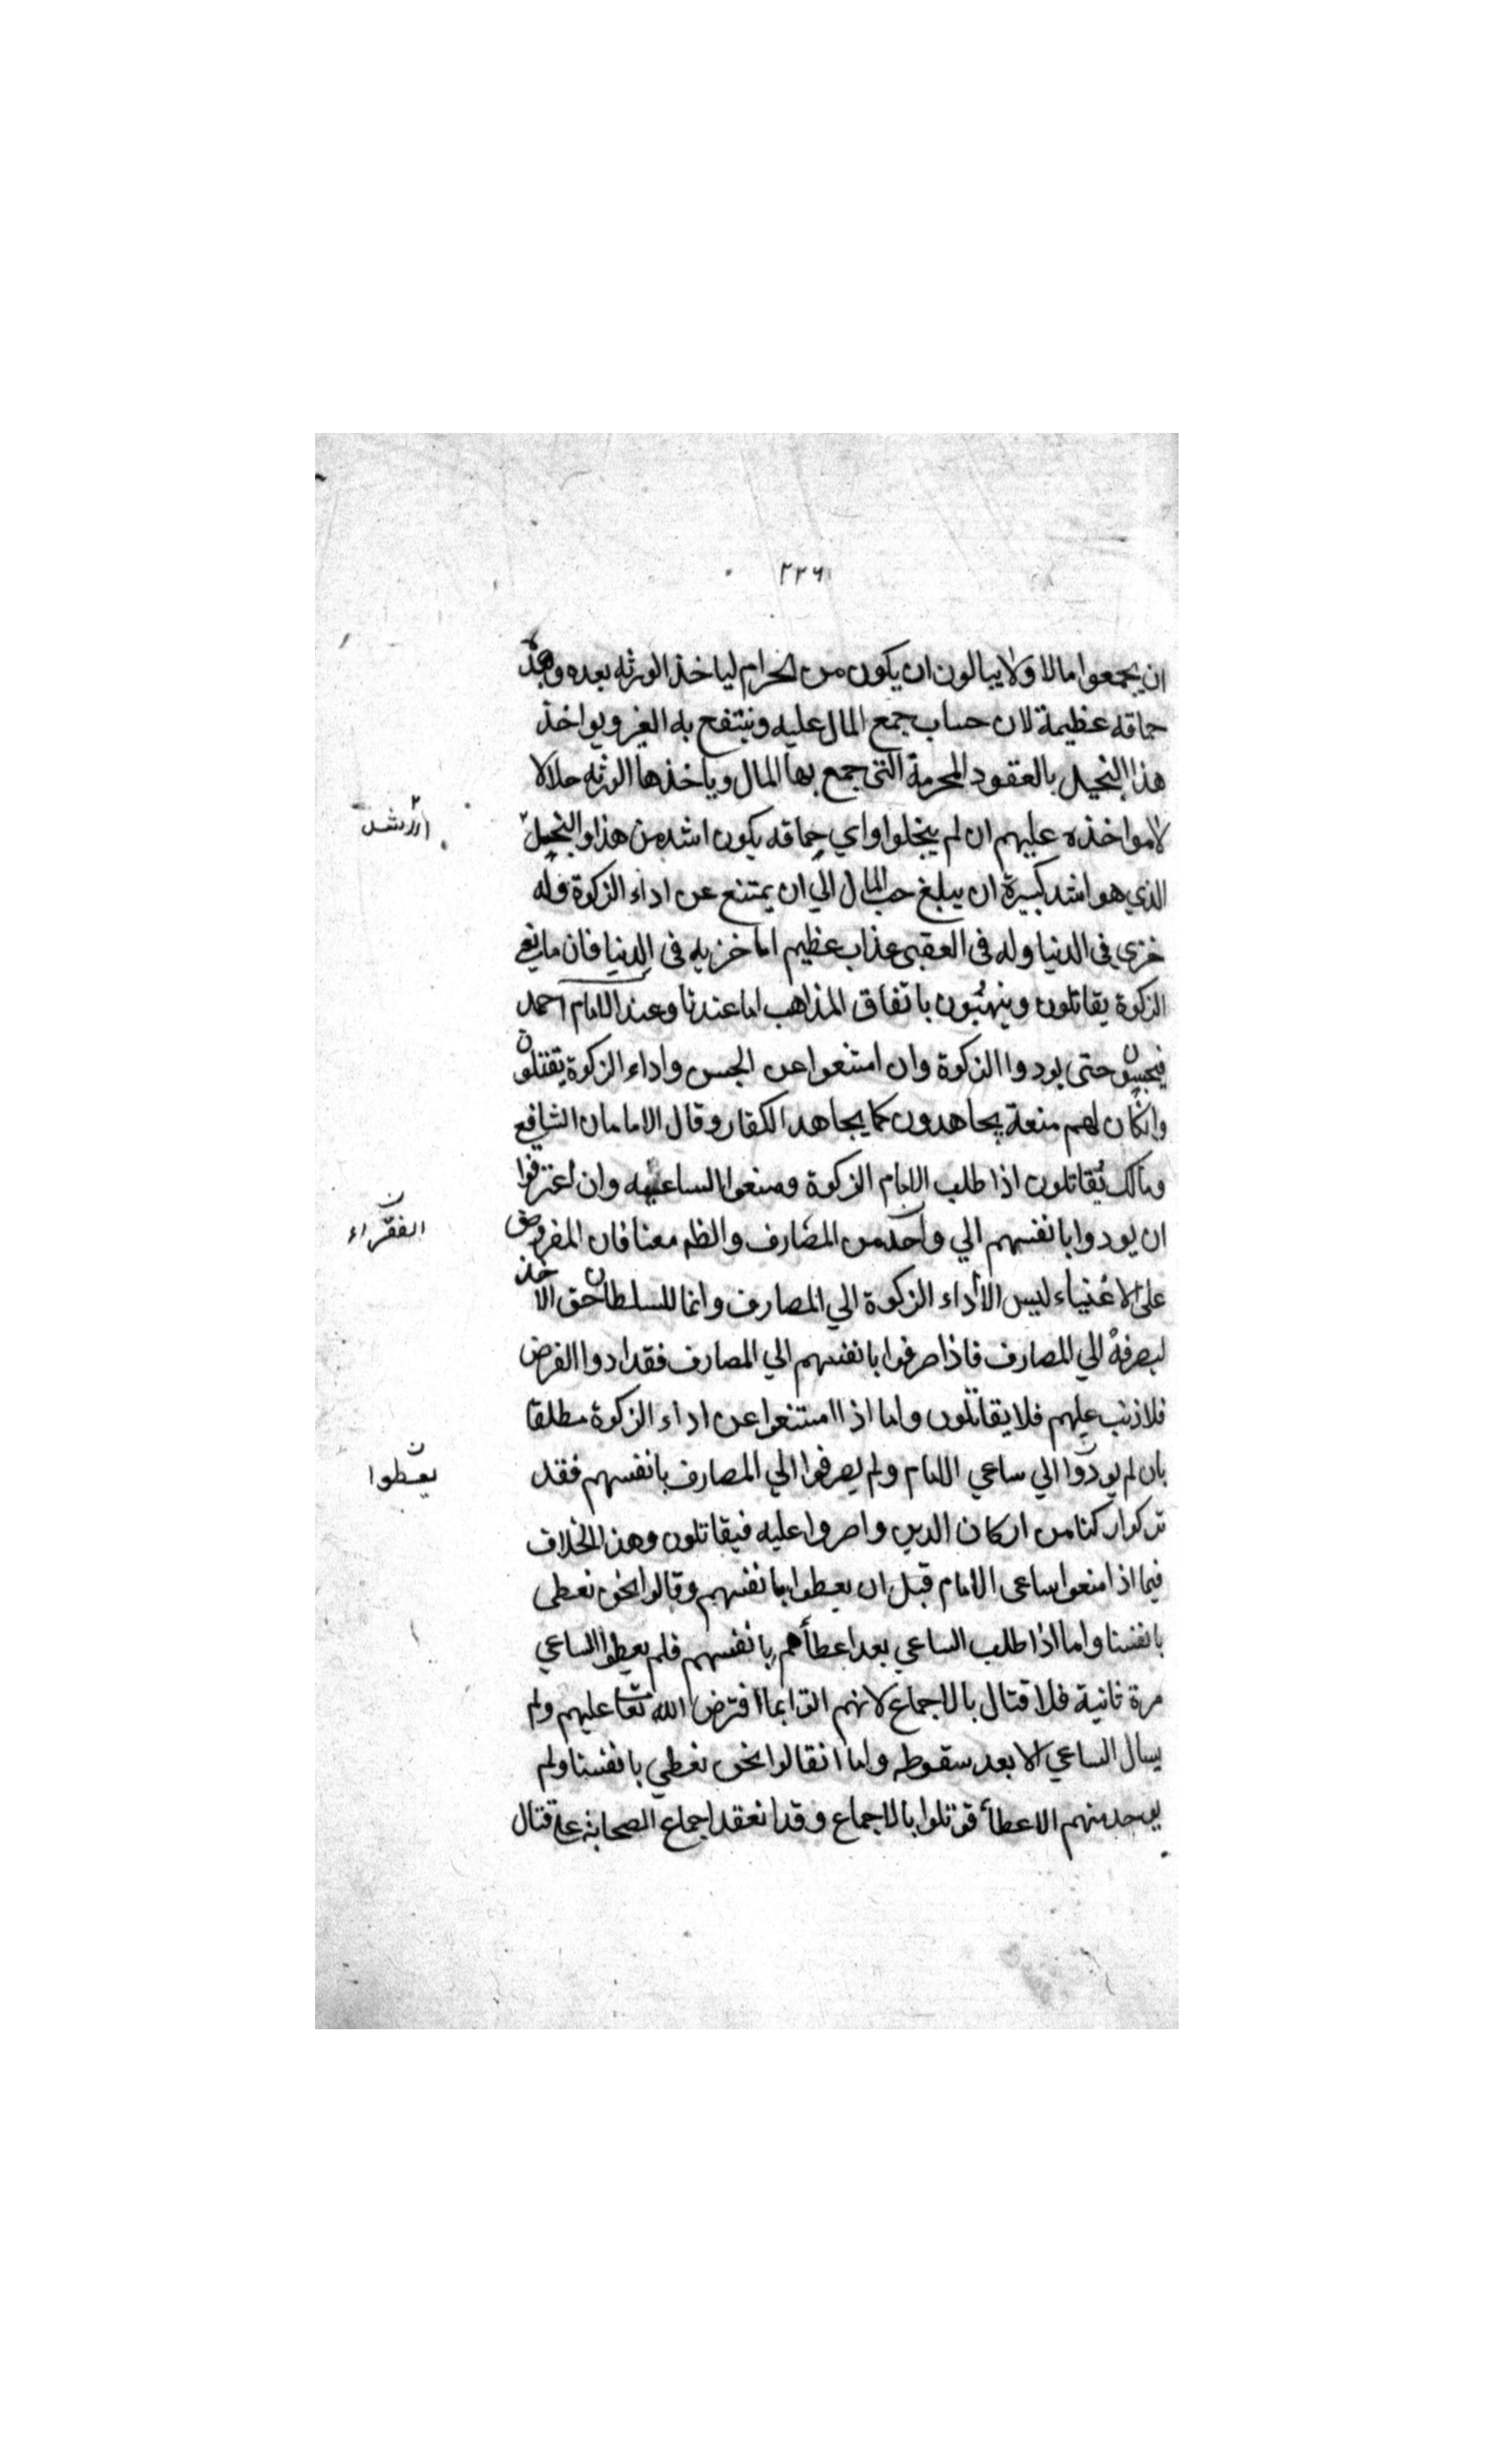 ٢٢٦
ان يجمعوا مالا ولا يبالون ان يكون من الحرام لياخذ الورثه بعده وهذ
حماقه عظيمة لان حساب جمع المال عليه وينتفع به الغير ويواخذ
هذا البخيل بالعقود المحرمة التى جمع بها المال وياخذها الورثه حلالا
لامواخذه عليهم ان لم يبخلوا واي حماقه يكون اشد من هذا والبخيل
الذي هو اشد كبيرة ان يبلغ حب المال الي ان يمتنع عن اداء الزكوة فله
خزي فى الدنيا وله فى العقبى عذاب عظيم اما خزيه فى الدنيا فان مانعي
الزكوة يقاتلون وينهبون باتفاق المذاهب اما عندنا وعند الامام احمد
فيحبسون حتى يودوا الزكوة وان امتنعوا عن الحبس واداء الزكوة يقتلون
وانكان لهم منعة يجاهدون كما يجاهد الكفار وقال الامامان الشافعي
ومالك يقاتلون اذا طلب الامام الزكوة ومنعوا الساعي وان اعترفوا
ان يودوا بانفسهم الي واحد من المصارف والظاهر معنا فان المفروض
على الاغنياء ليس الا أداء الزكوة الي المصارف وانما للسلطان حق الاخذ
ليصرفه الي المصارف فاذا صرفوا بانفسهم الي المصارف فقد ادوا الفرض
فلا ذنب عليهم فلا يقاتلون واما اذا امتنعوا عن اداء الزكوة مطلقا
بان لم يودوا الي ساعي الامام ولم يصرفوا الي المصارف بانفسهم فقد
تركوا ركنا من اركان الدين واصروا عليه فيقاتلون وهذا الخلاف
فيما اذا منعوا ساعى الامام قبل ان يعطوا بانفسهم وقالوا نحن نعطى
بانفسنا واما اذا طلب الساعي بعد اعطأهم بانفسهم فلم يعطوا الساعي
مرة ثانية فلا قتال بالاجماع لانهم اتوا بما افترض الله تعا عليهم ولم
يسال الساعي الا بعد سقوطه واما ان قالوا نحن نعطي بانفسنا ولم
يوجد منهم الاعطأ قوتلوا بالاجماع وقد انعقد اجماع الصحابة على قتال
الفقراء
يعطوا